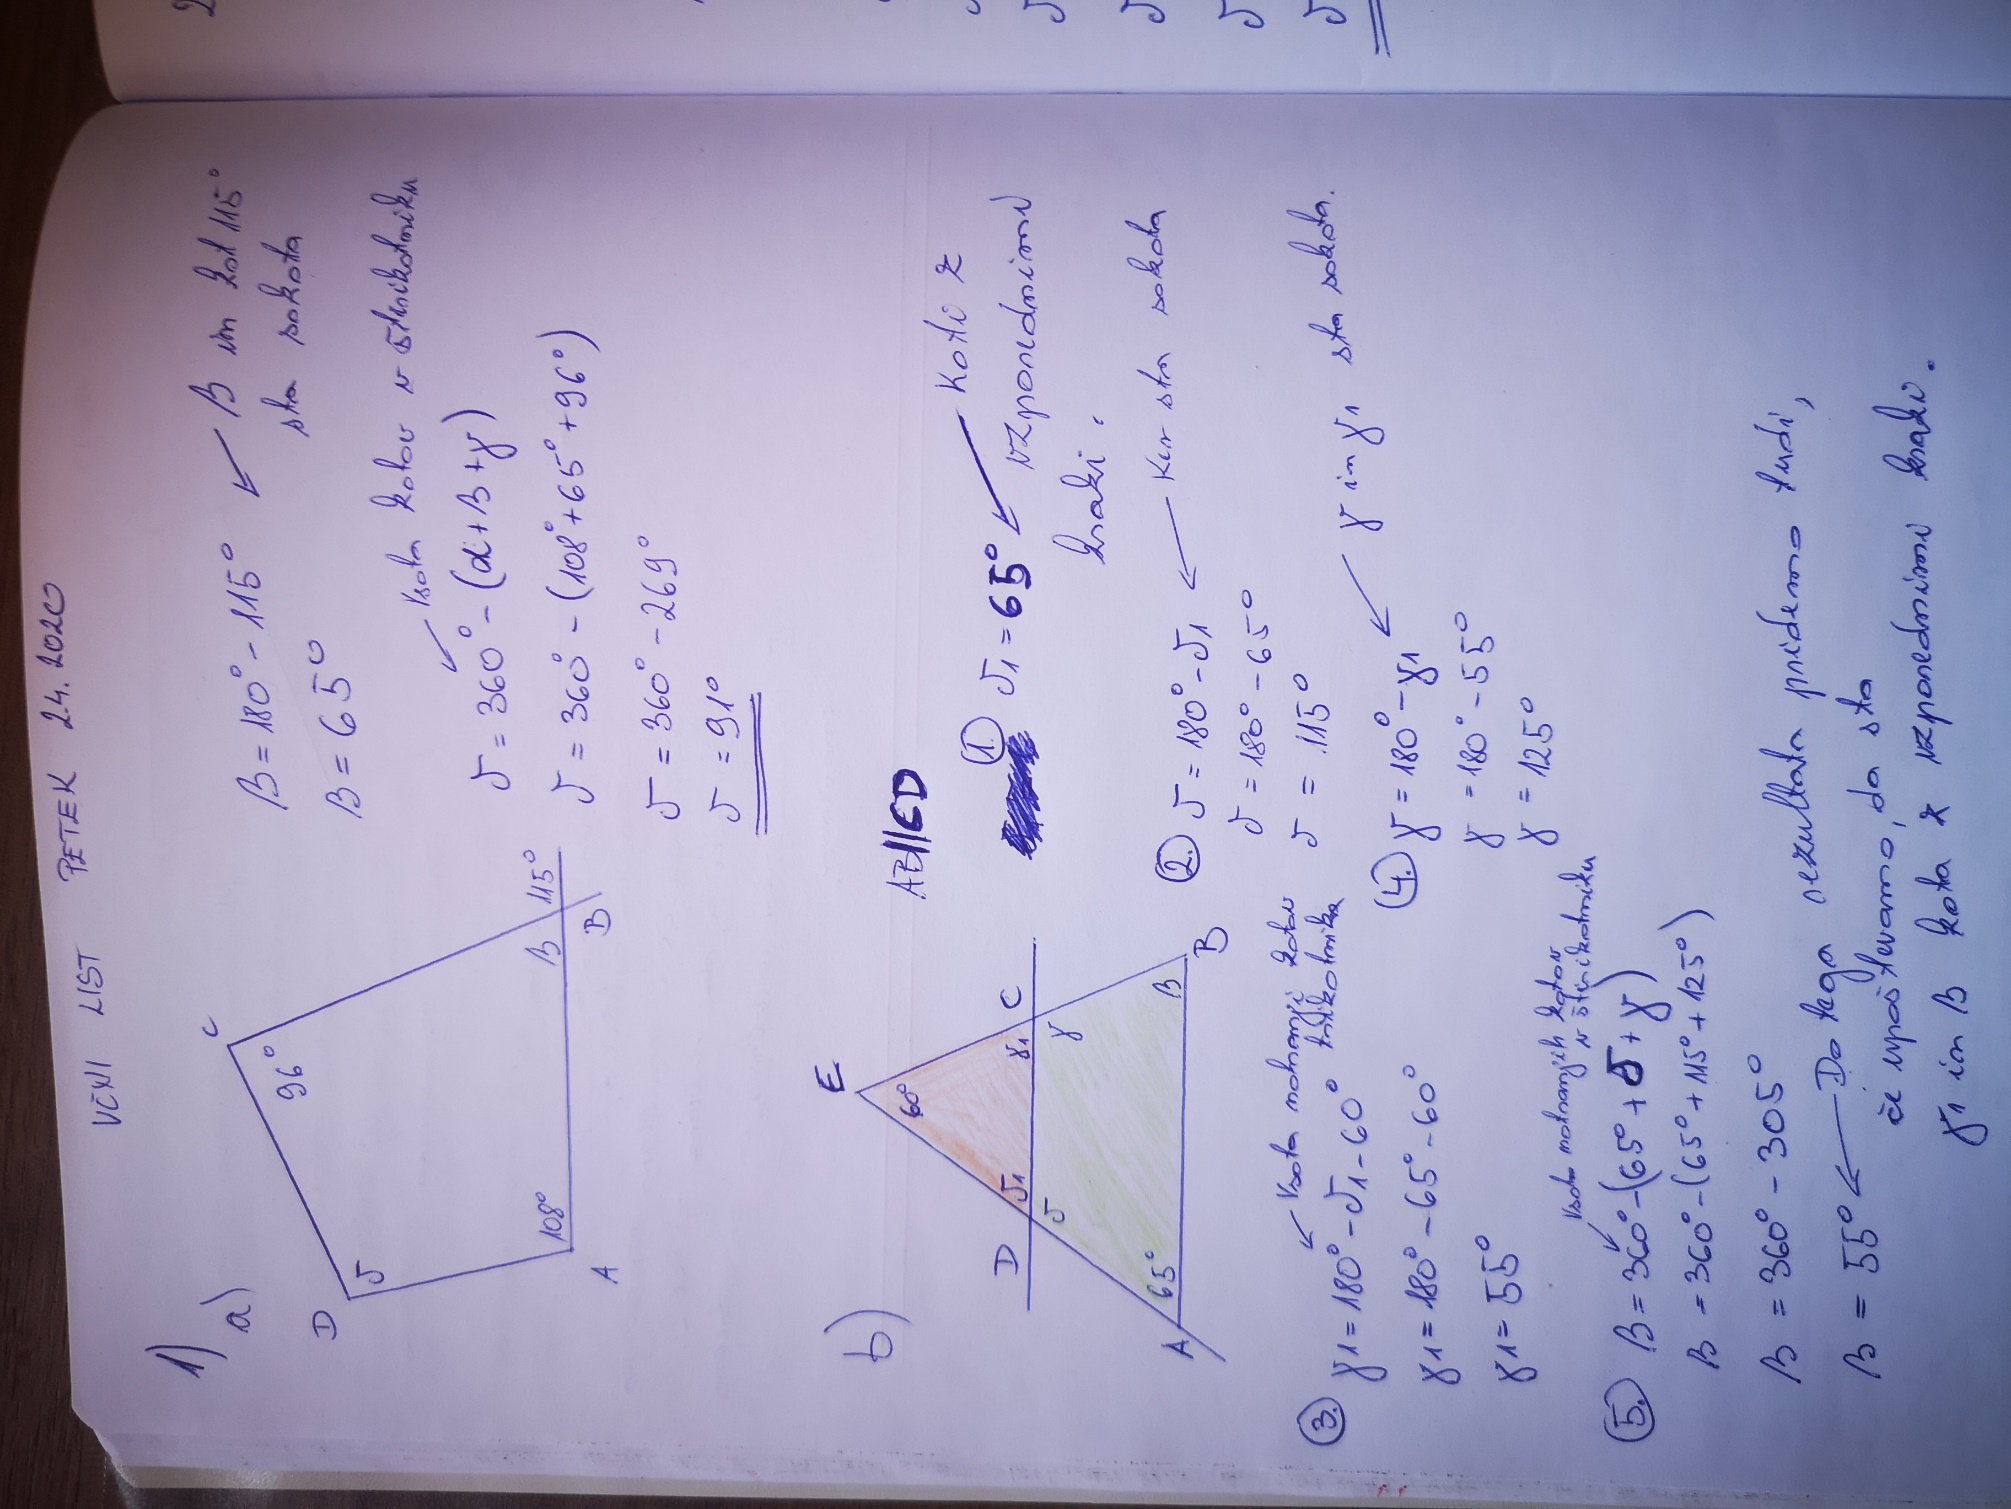 UČNI LIST PETEK 24.2020
1)
a)
D
C
96°
δ
108°
A
β
115°
B
β = 180° - 115° ← β in kot 115°
sta sokota
β = 65°
Vsota kotov v štirikotniku
δ = 360° - (α + β + γ)
δ = 360° - (108° + 65° + 96°)
δ = 360° - 269°
δ = 91°
b)
AB||CD
E
60°
D
δ1
γ1
C
δ
γ
65°
β
A
B
1. δ1 = 65° ← Koti z
vzporednimi
kraki.
2. δ = 180° - δ1 ← Ker sta sokota
δ = 180° - 65°
δ = 115°
Vsota notranji kotov
trikotnika
3. γ1 = 180° - δ1 - 60°
γ1 = 180° - 65° - 60°
γ1 = 55°
4. γ = 180° - γ1 ← γ in γ1 sta sokota.
γ = 180° - 55°
γ = 125°
Vsota notranjih kotov
v štirikotniku
5. β = 360° - (65° + δ + γ)
β = 360° - (65° + 115° + 125°)
β = 360° - 305°
β = 55° ← Do tega rezultata pridemo tudi,
če upoštevamo, da sta
γ1 in β kota z vzporednimi kraki.